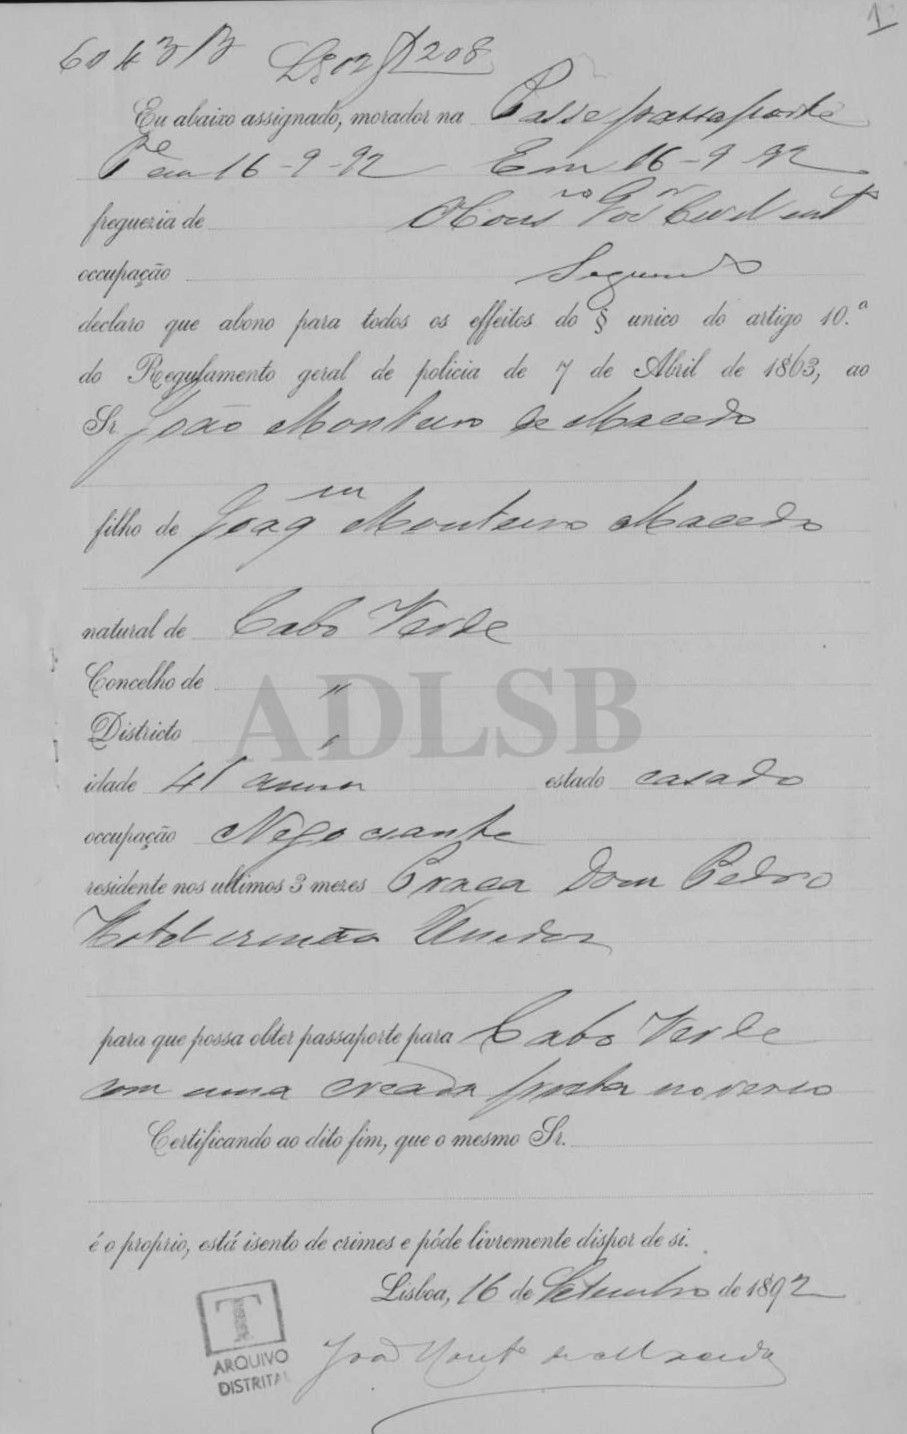 1
6043 B L 302 f 208
Eu abaixo assignado, morador na Passe passaporte
Pe em 16-9-92 Em 16-9-92
freguezia de O Cons no Gov Civil int
occupação Segundo
declaro que abono para todos os effeitos do § unico do artigo 10.º
do Regulamento geral de policia de 7 de Abril de 1863, ao
Sr. João Monteiro de Macedo
filho de Joaqm Monteiro Macedo
natural de Cabo Verde
Concelho de "
Districto "
idade 41 annos estado casado
occupação Negociante
residente nos ultimos 3 mezes Praça Dom Pedro
Hotel irmãos Unidos
para que possa obter passaporte para Cabo Verde
com uma creada preta no verso
Certificando ao dito fim, que o mesmo Sr.
é o proprio, está isento de crimes e póde livremente dispor de si.
Lisboa, 16 de Setembro de 1892
João Monto de Macedo
T
ARQUIVO
DISTRITAL
ADLSB